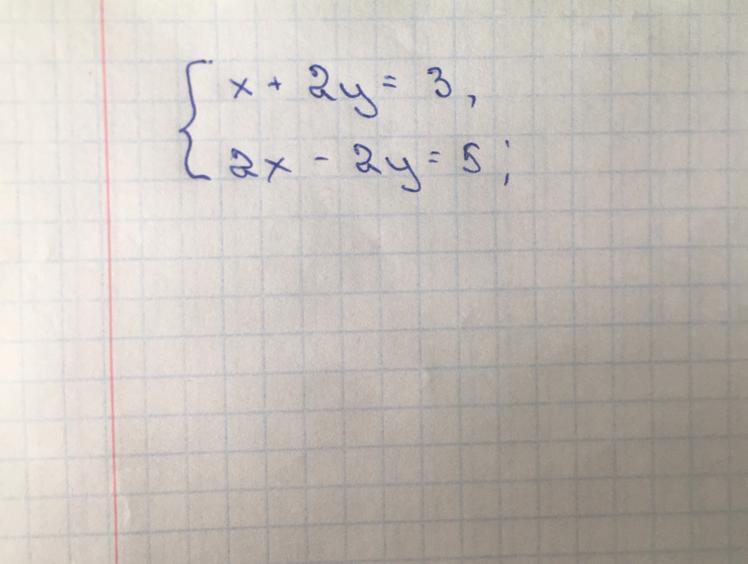 x + 2y = 3,
2x - 2y = 5;